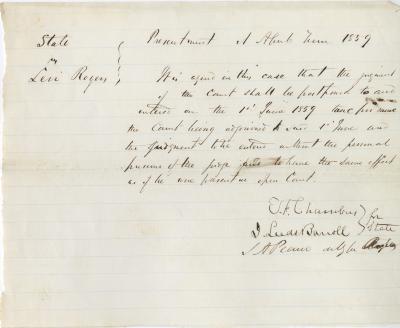 State
vs
Levi Rogers
Presentment at April Term 1859
It is agreed in this case that the judgment
of the Court shall be postponed to and
entered on the 1st June 1859 nunc pro tunc
the Court being adjourned to said 1st June and
the Judgment to be entered without the personal
presence of the judge to have the same effect
as if he were present in open Court.
E.F. Chambers for
J. Leeds Barroll State
J A Pearce atty for Rogers